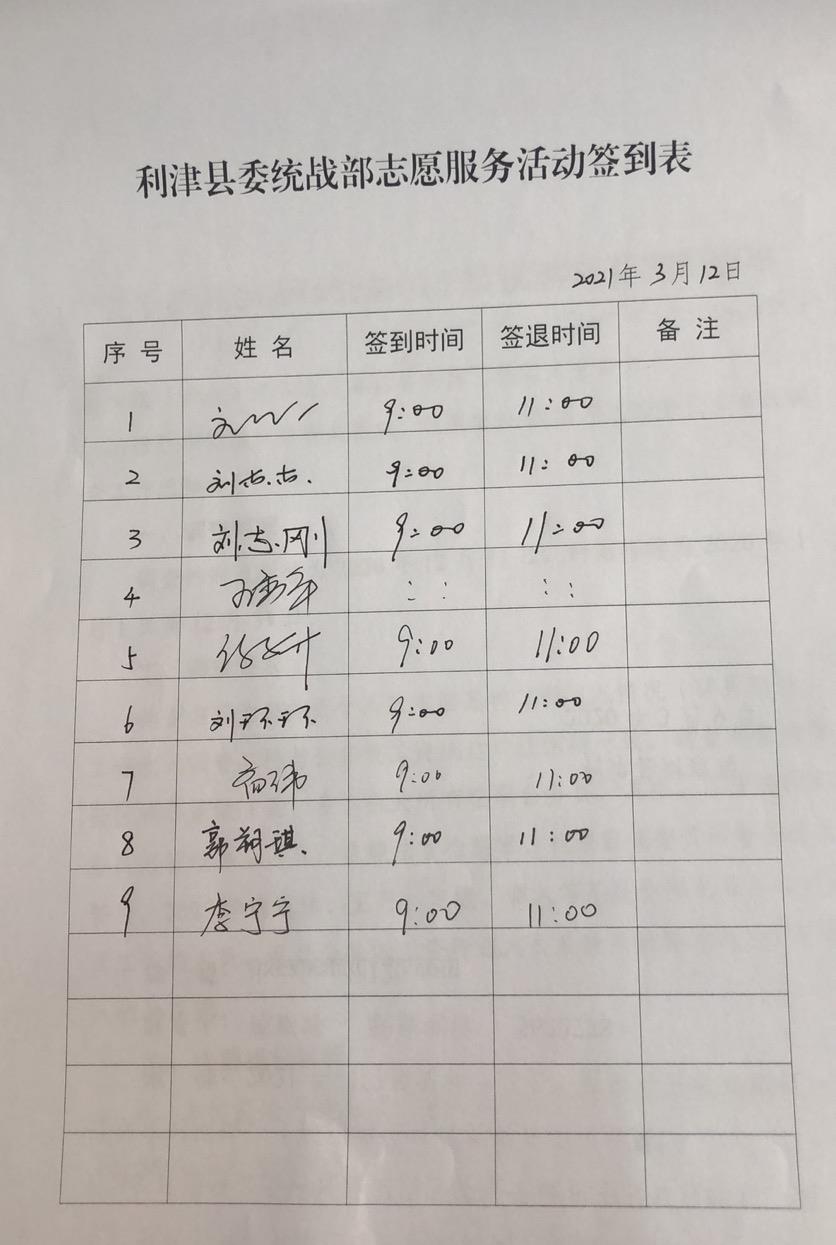 利津县委统战部志愿服务活动签到表
2021年 3月12日
序号 姓名 签到时间 签退时间 备注
1 9:00 11:00
2 刘志志. 9:00 11:00
3 刘志刚 9:00 11:00
4 : : : :
5 9:00 11:00
6 刘环环 9:00 11:00
7 高伟 9:00 11:00
8 郭翔琪. 9:00 11:00
9 李宁宁 9:00 11:00